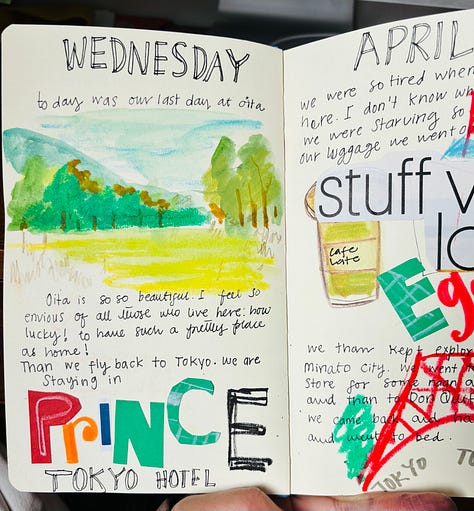 WEDNESDAY
today was our last day at oita
Oita is so so beautiful. I feel so
envious of all those who live here. how
lucky! to have such a pretty place
as home!
Than we fly back to Tokyo. we are
Staying in
PRINCE
TOKYO HOTEL
APRIL
we were so tired when
here. I don't know
we were starving so
our luggage we went
stuff
cafe
latte
we than kept explor
Minato City. we went
Store for some
and than to Don
we came back and
and went to bed.
TOKYO